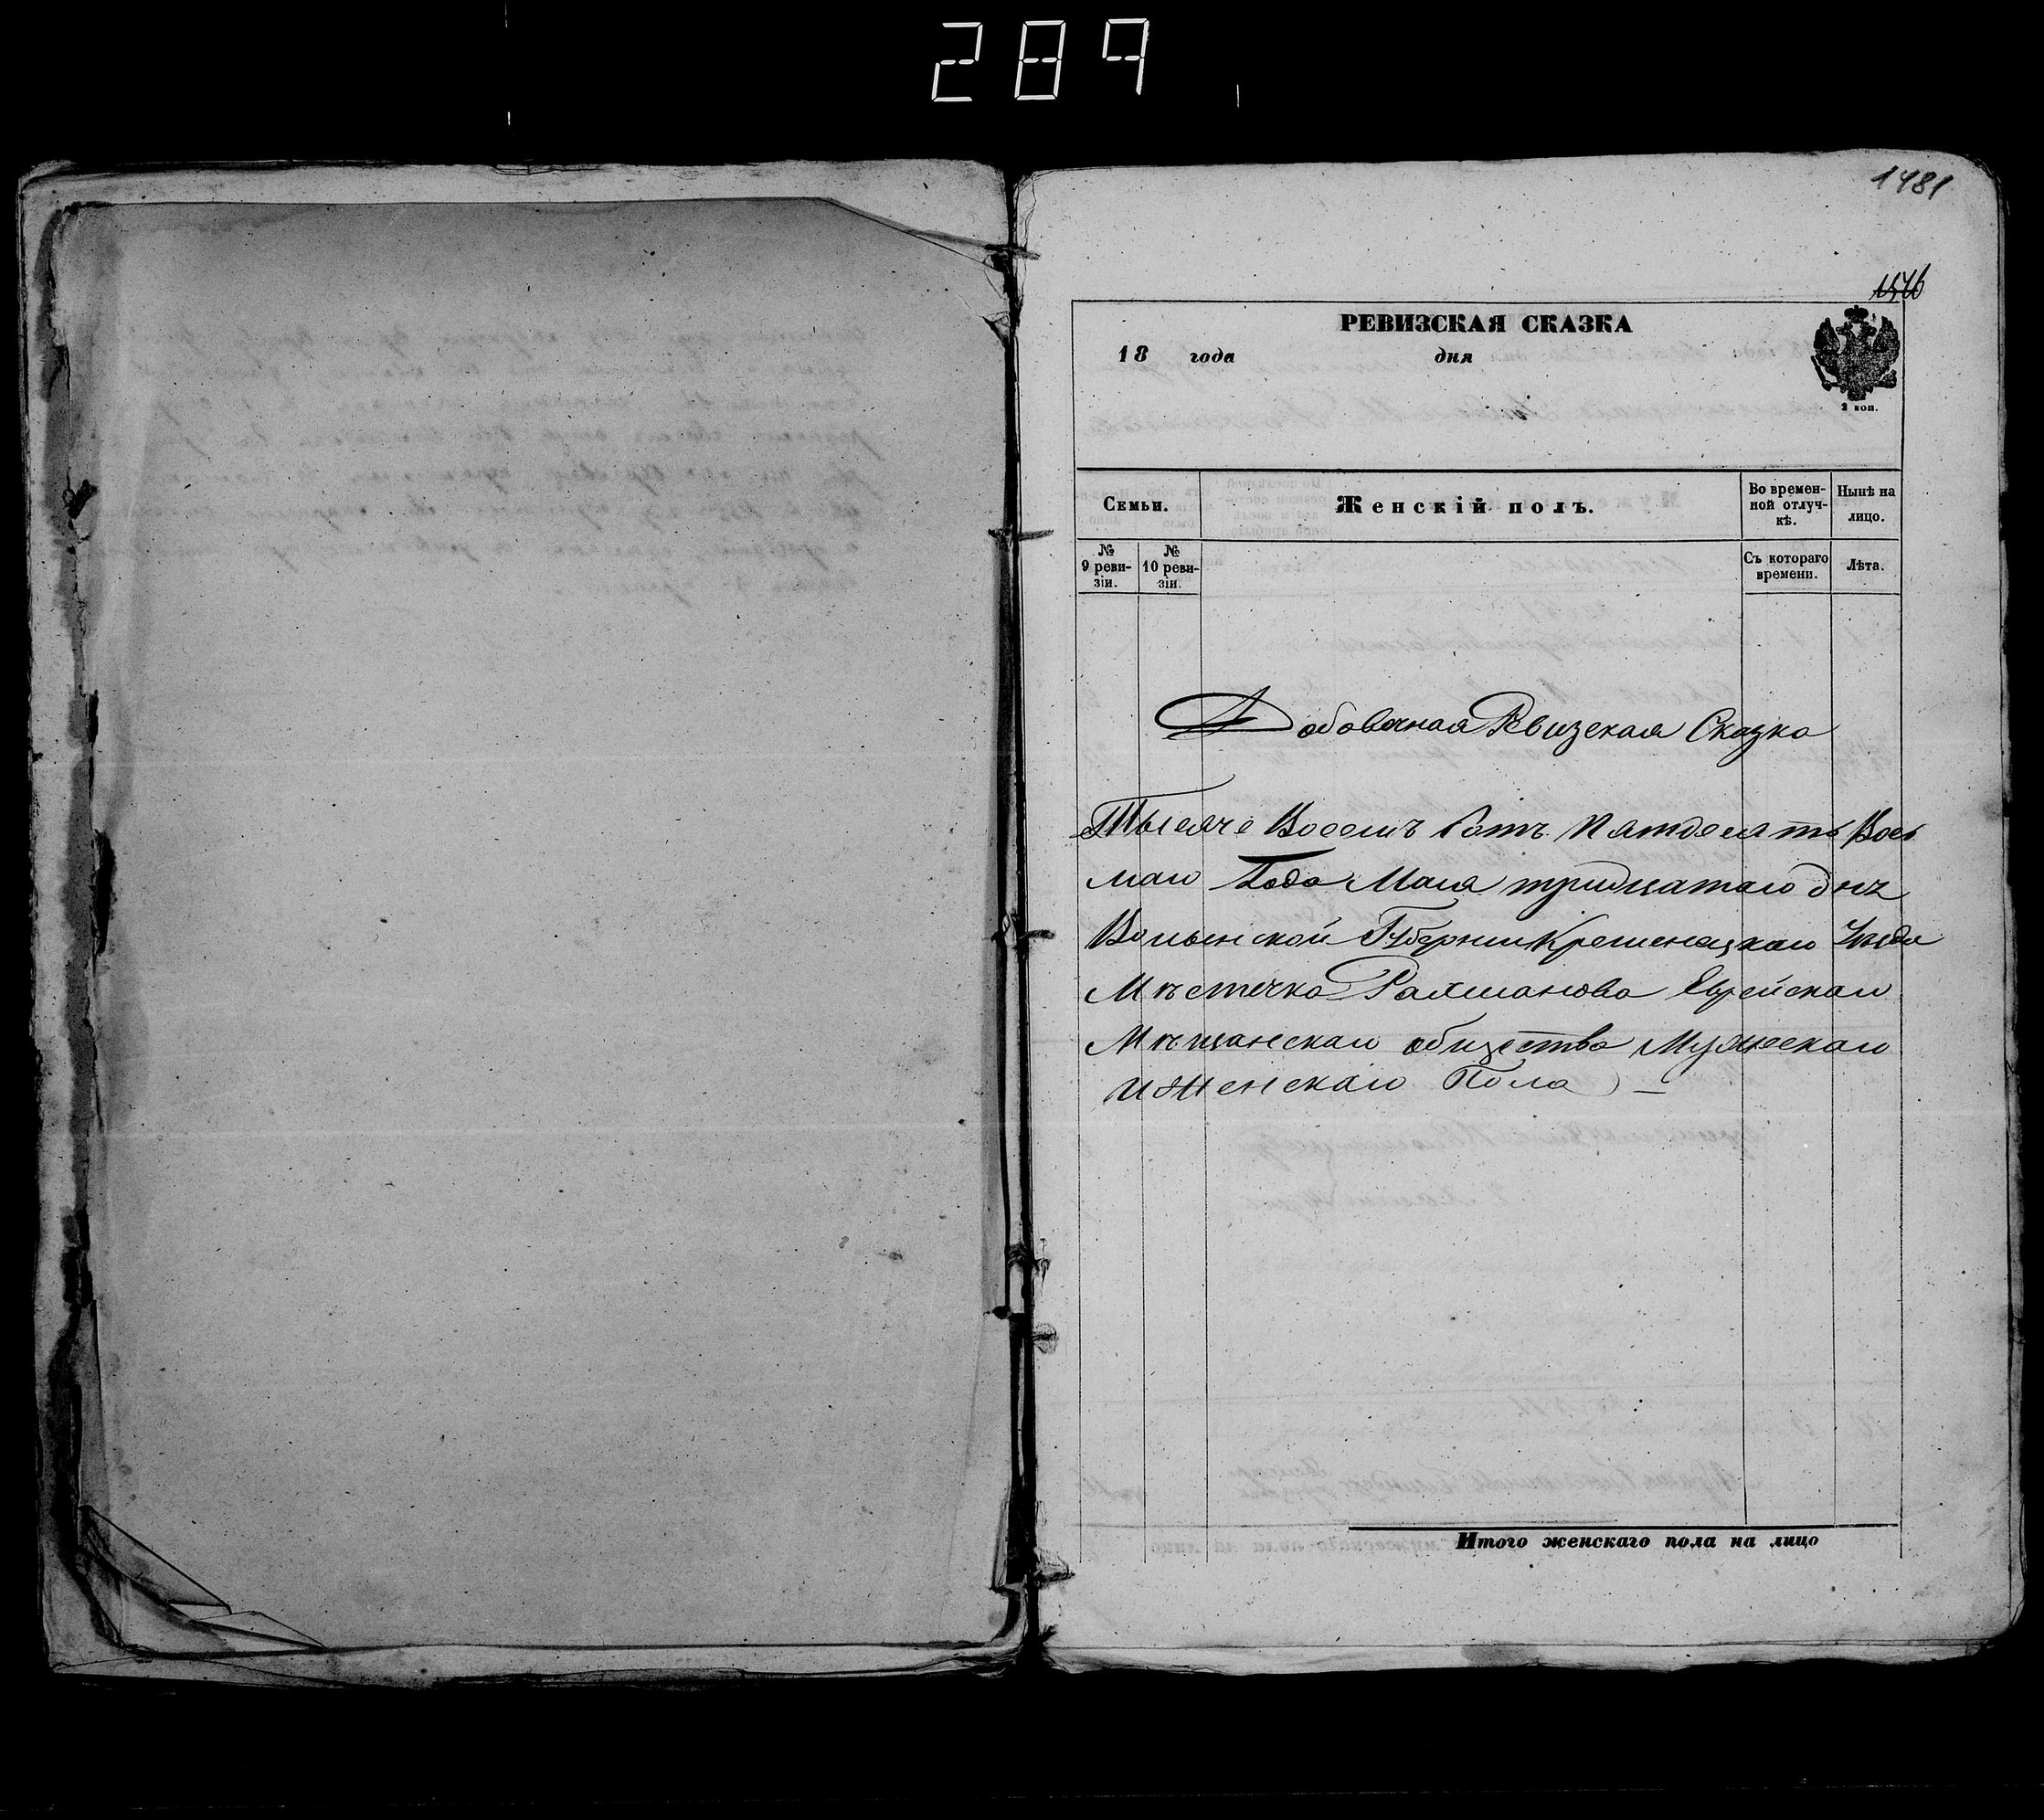 289
1481
1516
РЕВИЗСКАЯ СКАЗКА
18 года дня
2 коп.
Семьи. Женскій полъ. Во времен-ной отлуч-кѣ. Нынѣ на лицо.
№ 9 реви-зіи. № 10 реви-зіи. Съ котораго времени. Лѣта.
Добовочная Ревизская Сказка
Тысяче Восемъ Сотъ Пятдесятъ Вось
маго Года Мая тридцатаго дня
Волынской Губернии Кременецкаго Уѣзда
Мѣстечка Рахманова Еврейскаго
Мѣщанскаго общества Мужескаго
и Женскаго Пола —
Итого женскаго пола на лицо